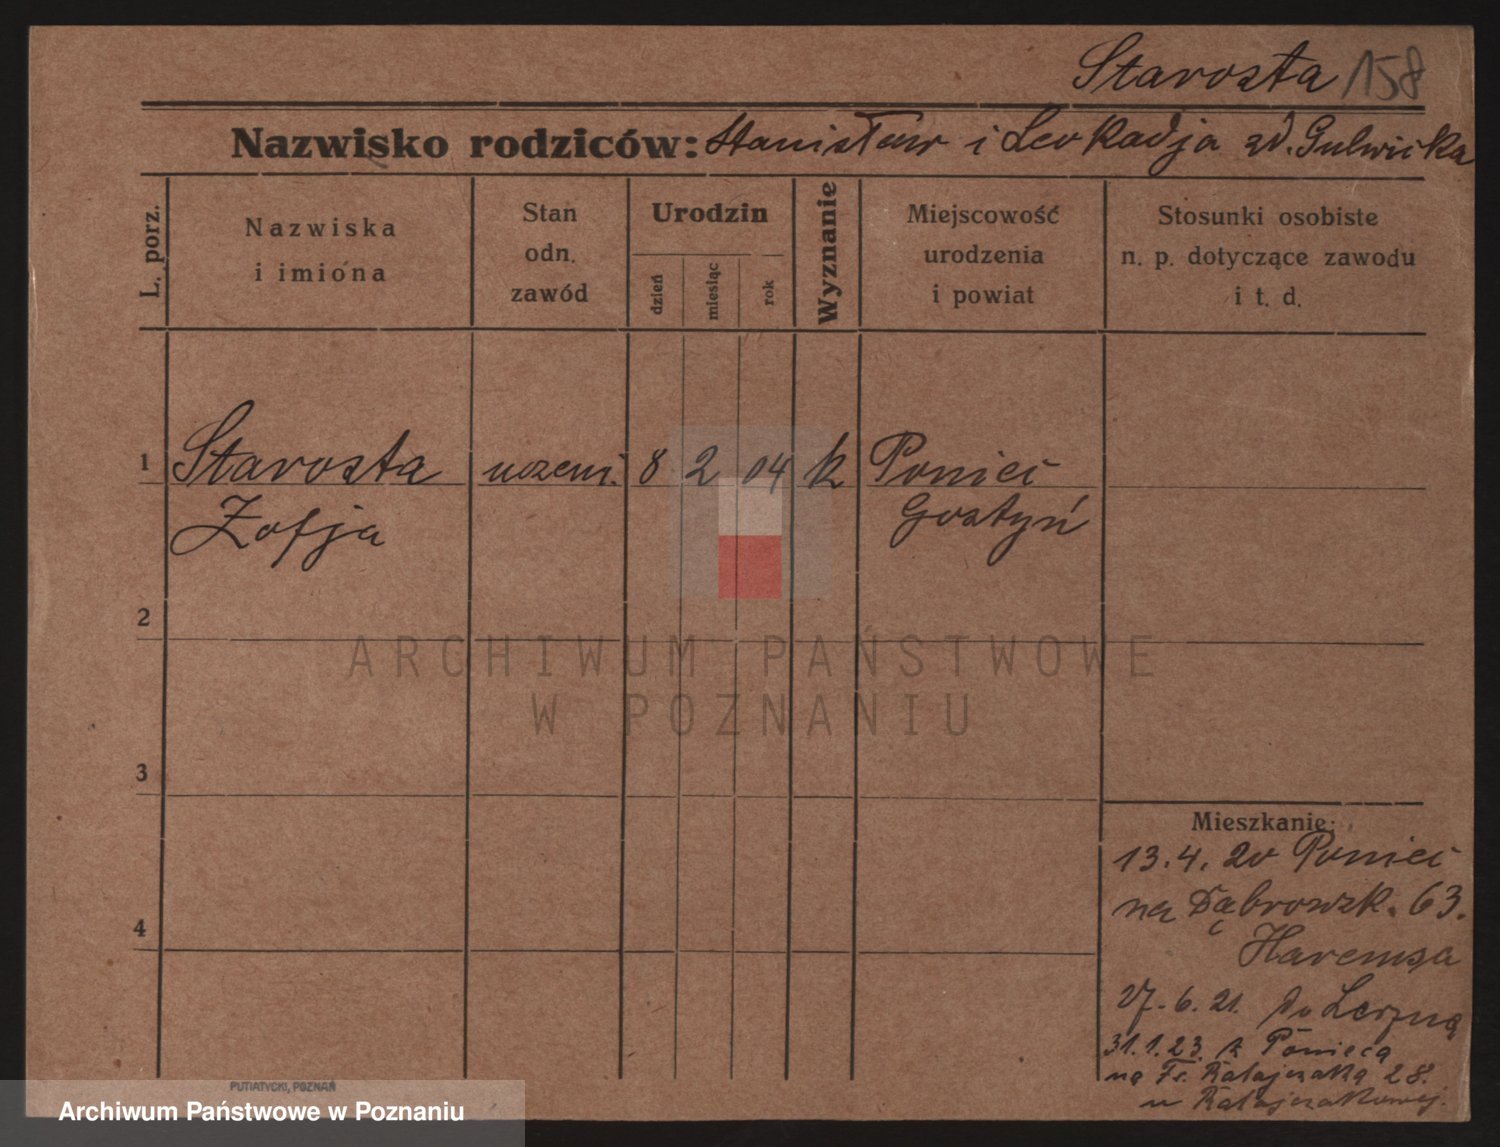 Starosta 158
Nazwisko rodziców: Stanisław i Leokadja zd. Gulwicka
L. porz.
Nazwiska
i imiona
Stan
odn.
zawód
Urodzin
dzień
miesiąc
rok
Wyznanie
Miejscowość
urodzenia
i powiat
Stosunki osobiste
n. p. dotyczące zawodu
i t. d.
1 Starosta uczeni. 8 2 04 k Poniec
Zofja Gostyń
2
ARCHIWUM PAŃSTWOWE
W POZNANIU
3
Mieszkanie:
13. 4. 20 Poniec
na Dąbrowsk. 63.
4
Haremsa
27. 6. 21. do
31. 1. 23. z Ponieca
na Fr. Ratajczaka 28.
u Ratajczakowej.
PUTIATYCKI, POZNAŃ
Archiwum Państwowe w Poznaniu